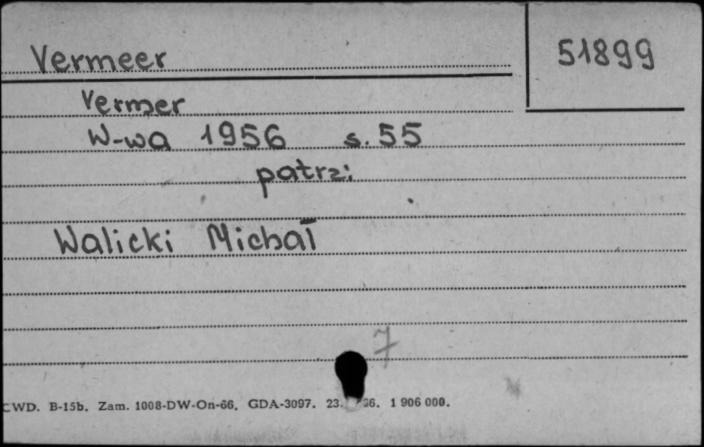 Vermeer
51899
Vermeer
W-wa 1956 s. 55
patrz:
Walicki Michał
7
CWD. B-15b. Zam. 1008-DW-On-66. GDA-3097. 23. 66. 1 906 000.